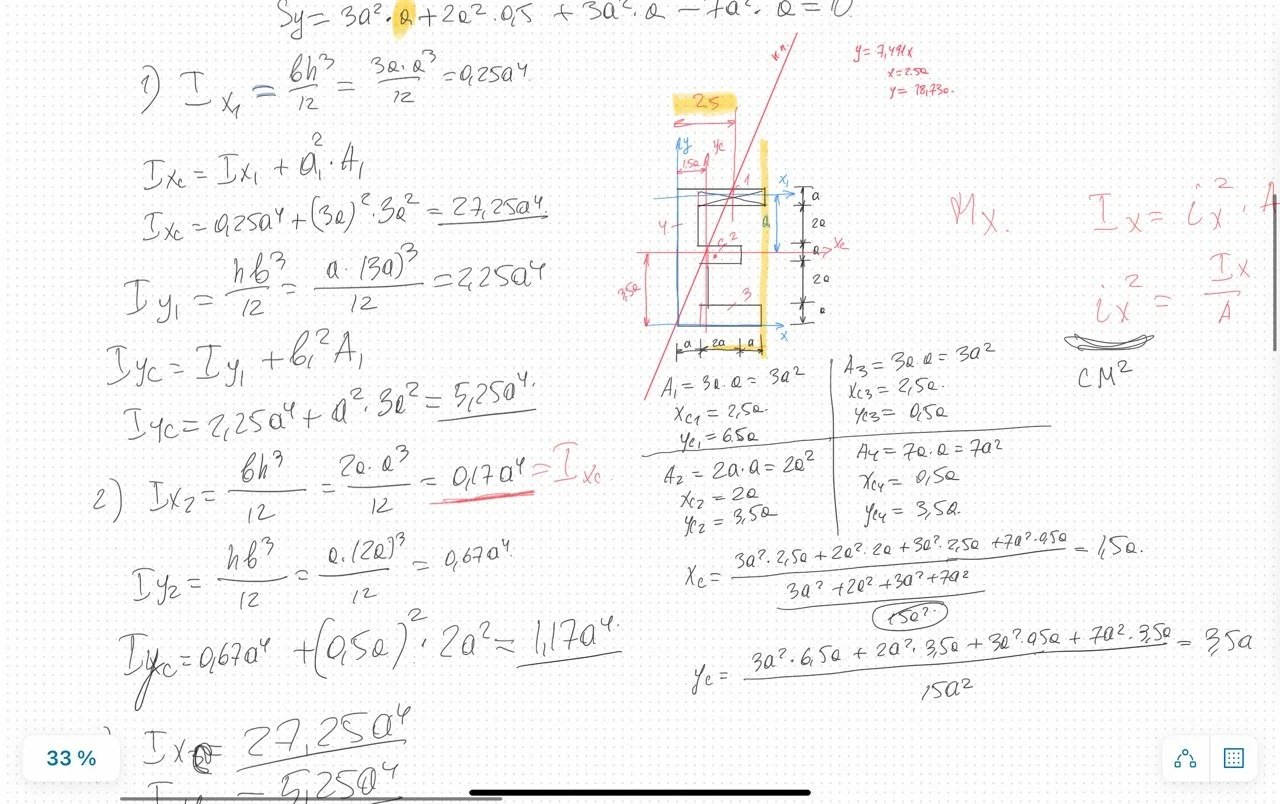 Sy = 3a²·a + 2a²·0,5 + 3a²·a − 7a²·a = 0.
1) Ix₁ = bh³/12 = 3a·a³/12 = 0,25a⁴
Ixc = Ix₁ + a₁²·A₁
Ixc = 0,25a⁴ + (3a)²·3a² = 27,25a⁴
Iy₁ = hb³/12 = a·(3a)³/12 = 2,25a⁴
Iyc = Iy₁ + b₁²A₁
Iyc = 2,25a⁴ + a²·3a² = 5,25a⁴.
2) Ix₂ = bh³/12 = 2a·a³/12 = 0,17a⁴ = Ixc
Iy₂ = hb³/12 = a·(2a)³/12 = 0,67a⁴.
Iyc = 0,67a⁴ + (0,5a)²·2a² = 1,17a⁴.
27,25a⁴
= 5,25a⁴
33 %
x=2.5a
2.5
y
yc
1.5a
1
x₁
a
2a
4
2
a
xc
a
2a
3,5a
3
a
x
a
2a
a
A₁ = 3a·a = 3a²
xc₁ = 2,5a.
yc₁ = 6.5a
A₃ = 3a·a = 3a²
xc₃ = 2,5a.
yc₃ = 0,5a.
A₂ = 2a·a = 2a²
xc₂ = 2a
yc₂ = 3,5a
A₄ = 7a·a = 7a²
xc₄ = 0,5a.
yc₄ = 3,5a.
xc = 3a²·2,5a + 2a²·2a + 3a²·2,5a + 7a²·0,5a / 3a² + 2a² + 3a² + 7a² = 1,5a.
15a²
yc = 3a²·6,5a + 2a²·3,5a + 3a²·0,5a + 7a²·3,5a / 15a² = 3,5a
Mx.
Ix = ix²·A
ix² = Ix/A
см²